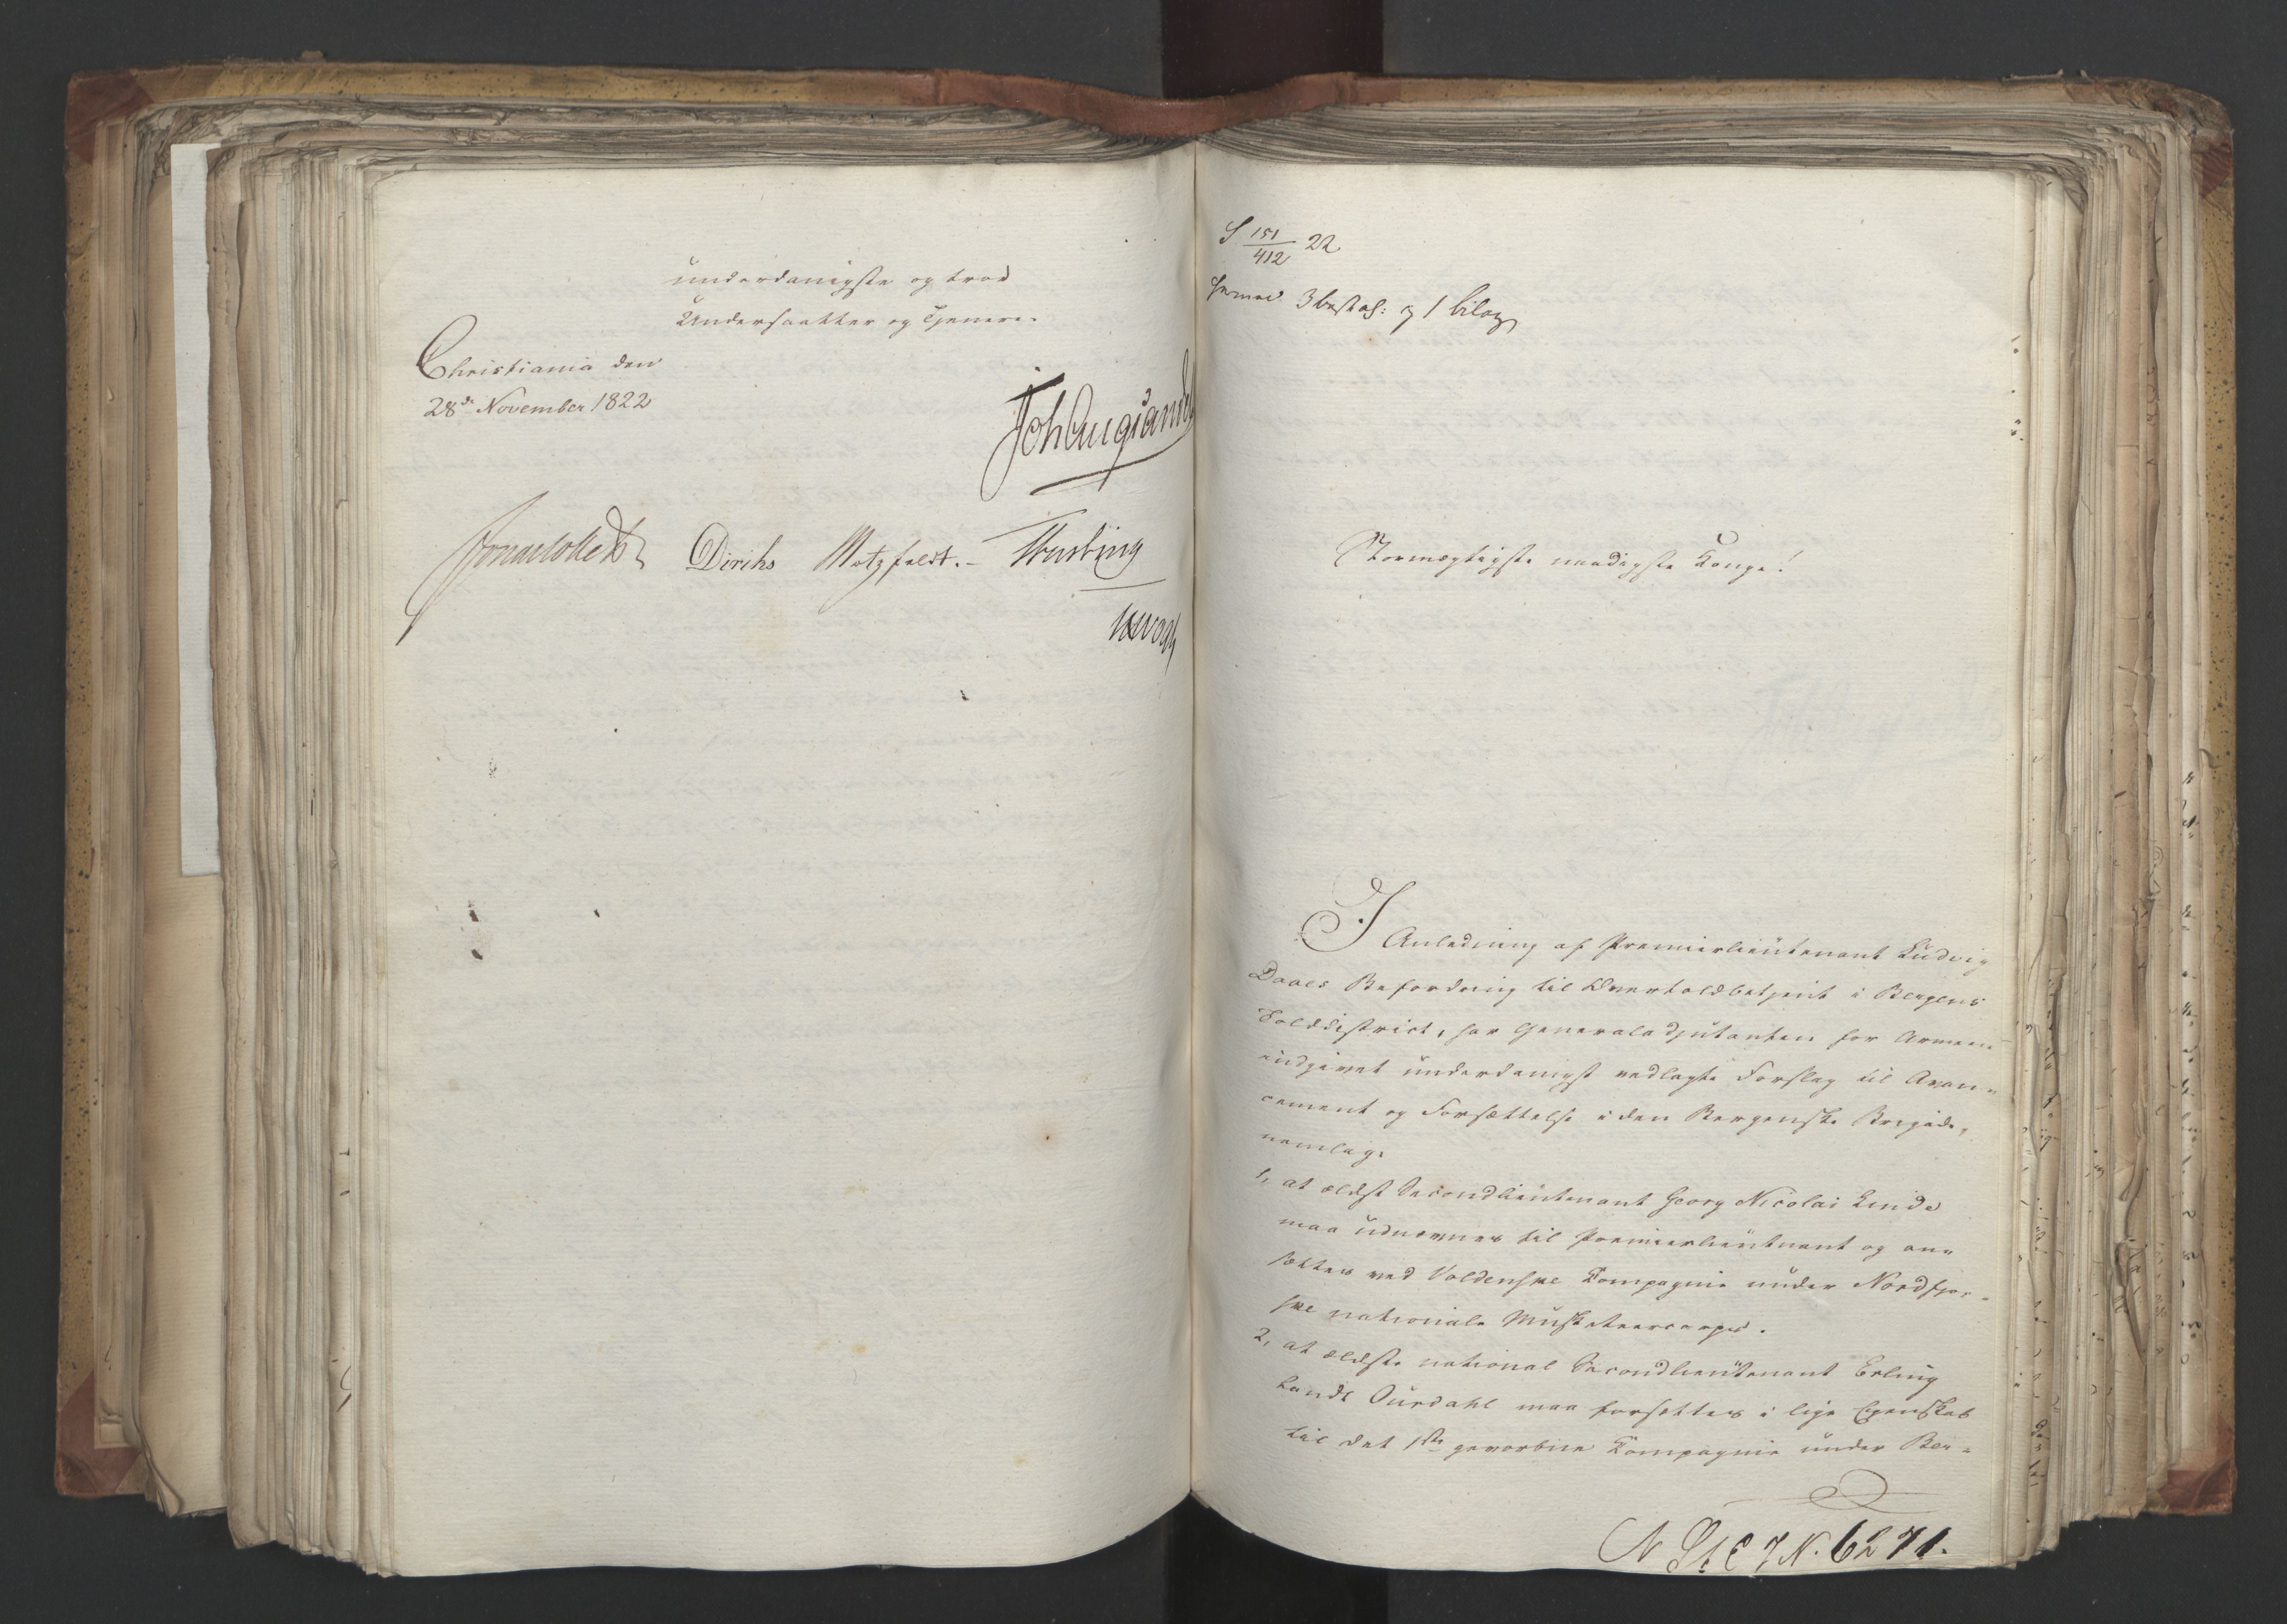 underdanigste og troe
Undersaatter og Tjenere.
Christiania den
28de November 1822
Joh Aug Sandels
Jonas Collett
Diriks
Motzfeldt.
S 151/412 22
hermed 3 bestal: og 1 bilag
Stormægtigste naadigste Konge!
I Anledning af Premierlieutenant Ludvig
Daaes Befordring til Overtoldbetjent i Bergens
Tolddistrict, har Generaladjutanten for Armeen
indgivet underdanigst vedlagte Forslag til Avan-
cement og Forsættelse i den Bergenske Brigade,
nemlig:
1, at ældst Secondlieutenant Georg Nicolai Linde
maa udnævnes til Premierlieutnant og an-
sættes ved Voldenske Kompagnie under Nordfjor-
ske nationale Musketeercorps.
2, at ældste national Secondlieutenant Erling
Lande Ourdahl maa forsættes i lige Egenskab
til det 1ste geworbne Kompagnie under Ber-
N St E 7 N. 6271.